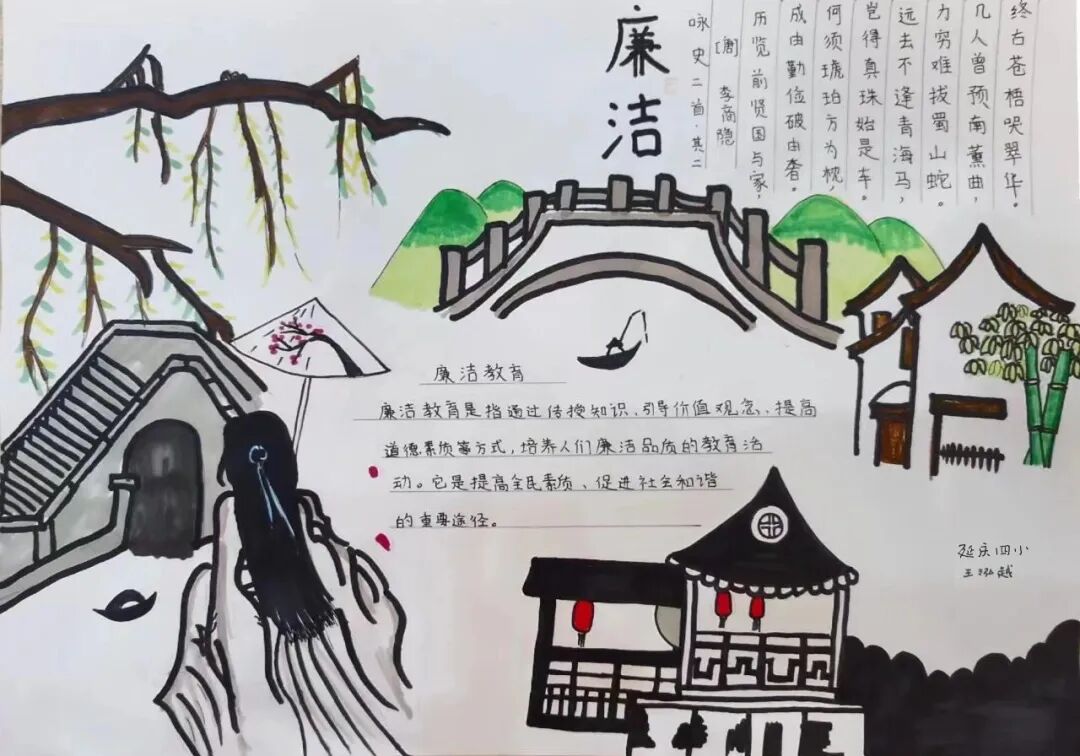 廉洁
咏史二首·其二
[唐] 李商隐
历览前贤国与家，
成由勤俭破由奢。
何须琥珀方为枕，
岂得真珠始是车。
远去不逢青海马，
力穷难拔蜀山蛇。
几人曾预南薰曲，
终古苍梧哭翠华。
廉洁教育
廉洁教育是指通过传授知识、引导价值观念、提高
道德素质等方式，培养人们廉洁品质的教育活
动。它是提高全民素质、促进社会和谐
的重要途径。
延庆四小
王泓越